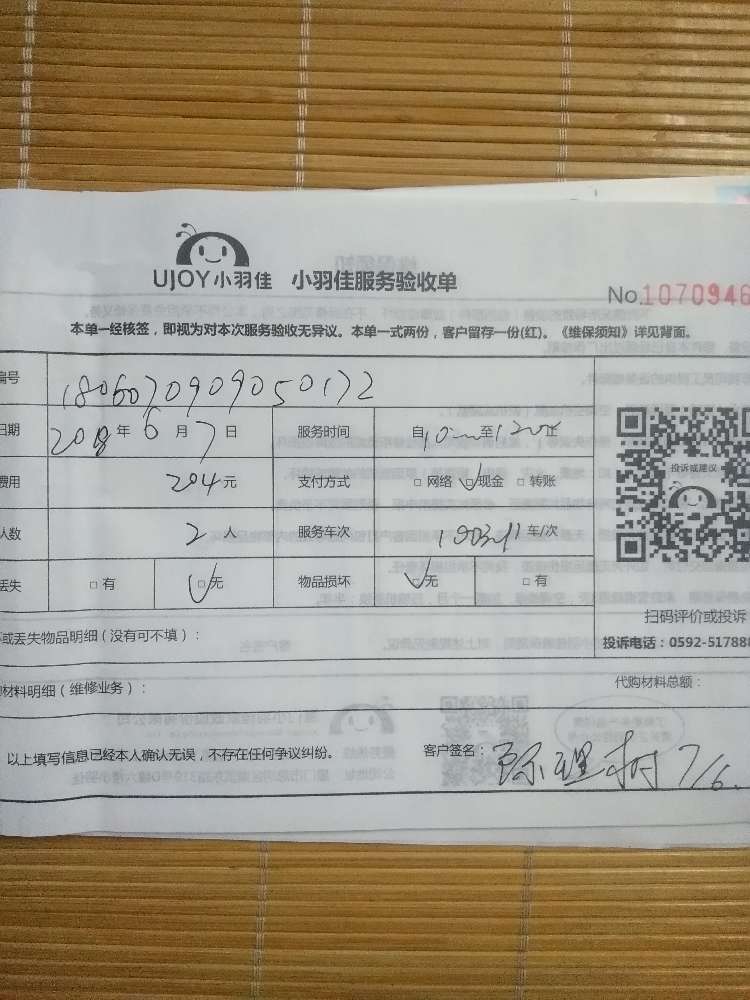 UJOY小羽佳 小羽佳服务验收单
No.1070946
本单一经核签，即视为对本次服务验收无异议。本单一式两份，客户留存一份(红)。《维保须知》详见背面。
编号 1806070909050172
日期 2018年6月7日 服务时间 自10 至12
费用 204元 支付方式 □网络 ☑现金 □转账
人数 2人 服务车次 车/次
投诉或建议
丢失 □有 ☑无 物品损坏 ☑无 □有
扫码评价或投诉
或丢失物品明细（没有可不填）：
投诉电话：0592-517888
材料明细（维修业务）：
代购材料总额：
以上填写信息已经本人确认无误，不存在任何争议纠纷。
客户签名： 7/6.